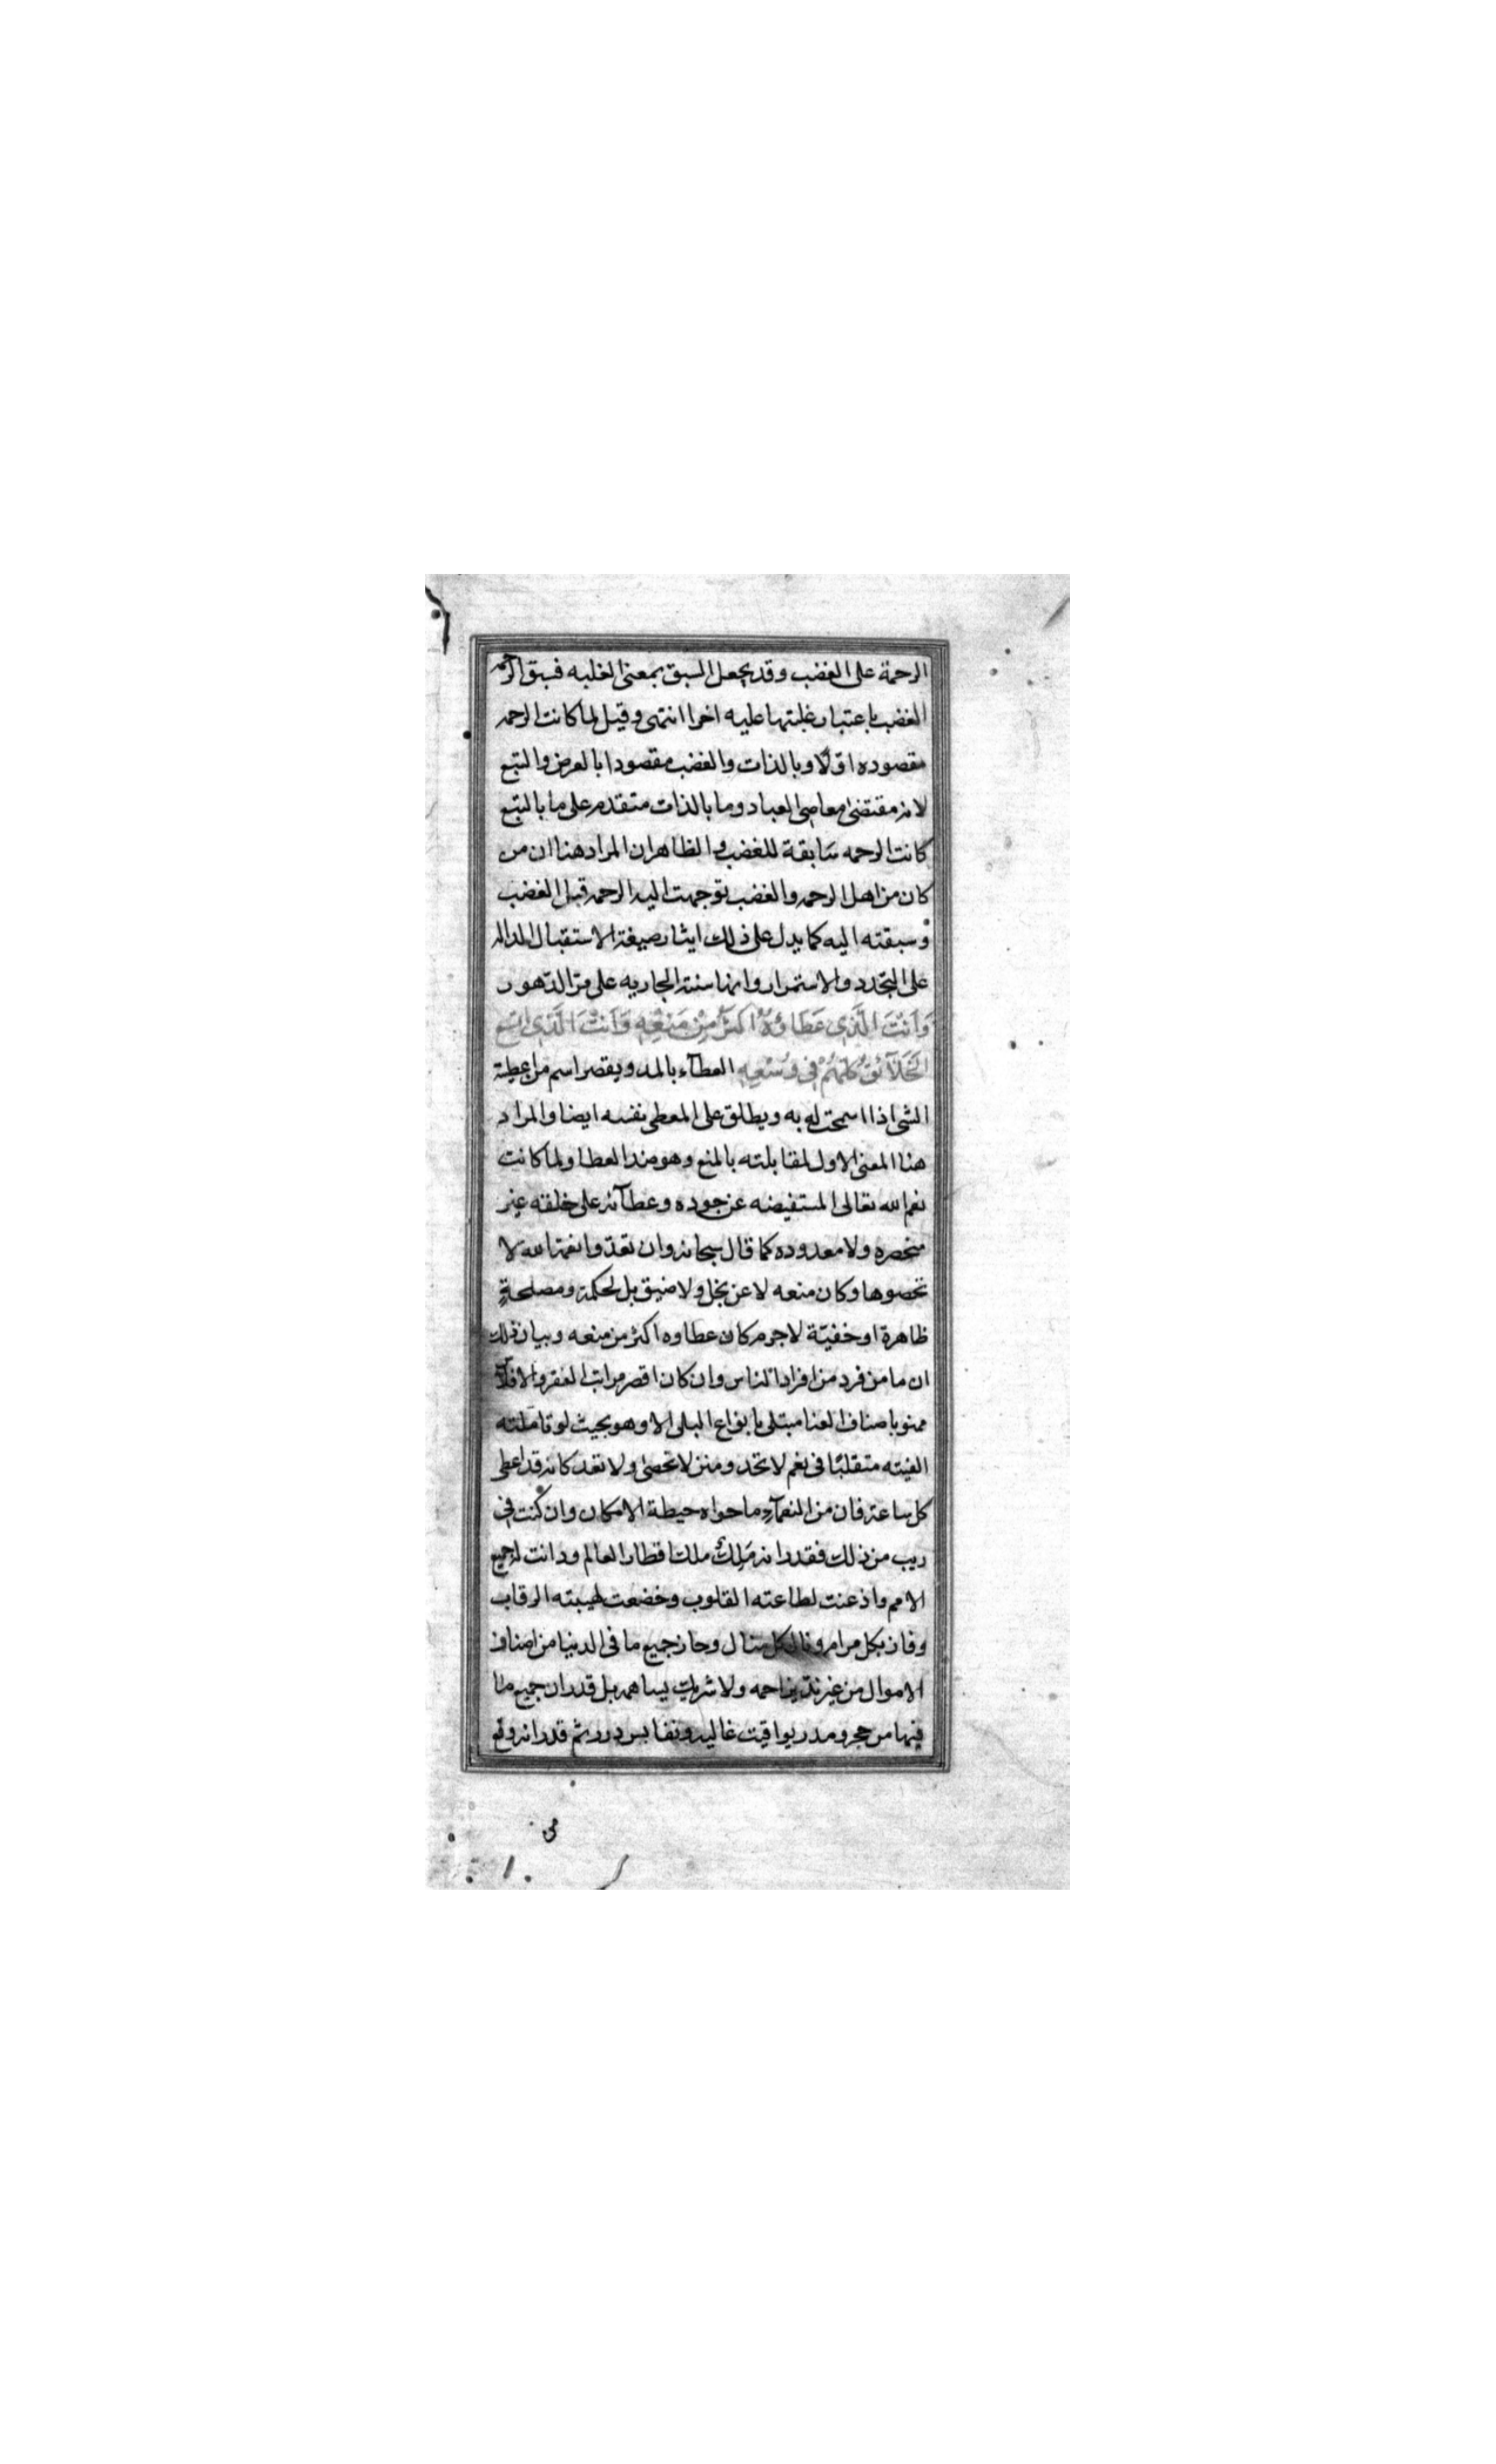 الرحمة على الغضب وقد يجعل السبق بمعنى الغلبه فسبق الرحمه
الغضب باعتبار غلبتها عليه اخرا انتهى وقيل لما كانت الرحمه
مقصوده اوّلا وبالذات والغضب مقصودا بالعرض والتبع
لانه مقتضى معاصى العباد وما بالذات متقدم على ما بالتبع
كانت الرحمه سابقة للغضب والظاهر ان المراد هنا ان من
كان من اهل الرحمه والغضب توجهت اليه الرحمه قبل الغضب
وسبقته اليه كما يدل على ذلك ايثار صيغة الاستقبال الداله
على التجدد والاستمرار وانها سنته الجاريه على مرّ الدهور
وَاَنْتَ الَّذى عَطَاؤُهُ اَكْثَرُ مِنْ مَنْعِهِ وَاَنْتَ الَّذى اتّسع
الْخَلَآئِقُ كُلُّهُمْ فى وُسْعِهِ العطآء بالمد ويقصر اسم من اعطيته
الشى اذا اسمحت له به ويطلق على المعطى نفسه ايضا والمراد
هنا المعنى الاول لمقابلته بالمنع وهو ضد العطا ولما كانت
نعم الله تعالى المستفيضه عن جوده وعطآئه على خلقه غير
منحصره ولا معدوده كما قال سبحانه وان تعدّوا نعمة الله لا
تحصوها وكان منعه لا عن بخل ولا ضيق بل لحكمة ومصلحةٍ
ظاهرة او خفيّة لا جرم كان عطاوه اكثر من منعه وبيان ذلك
ان ما من فرد من افراد الناس وان كان اقصر مراتب الفقر والاقلال
ممنو باصناف العنا مبتلى بانواع البلى الا وهو بحيث لو تاملته
الفيته متقلبًا فى نعم لا تحد ومنن لا تحصى ولا تعد كانه قد اعطى
كل ساعة فان من النعمآء ما حواه حيطة الامكان وان كنت فى
ريب من ذلك فقدر انه مَلِكٌ ملك اقطار العالم ودانت له جميع
الامم واذعنت لطاعته القلوب وخضعت لهيبته الرقاب
وفاز بكل مرام ونال كل منال وحاز جميع ما فى الدنيا من اصناف
الاموال من غير ندّ يزاحمه ولا شريك يساهمه بل قدر ان جميع ما
فيها من حجر ومدر يواقيت غاليه ونفايس درر ثم قدر انه وقع